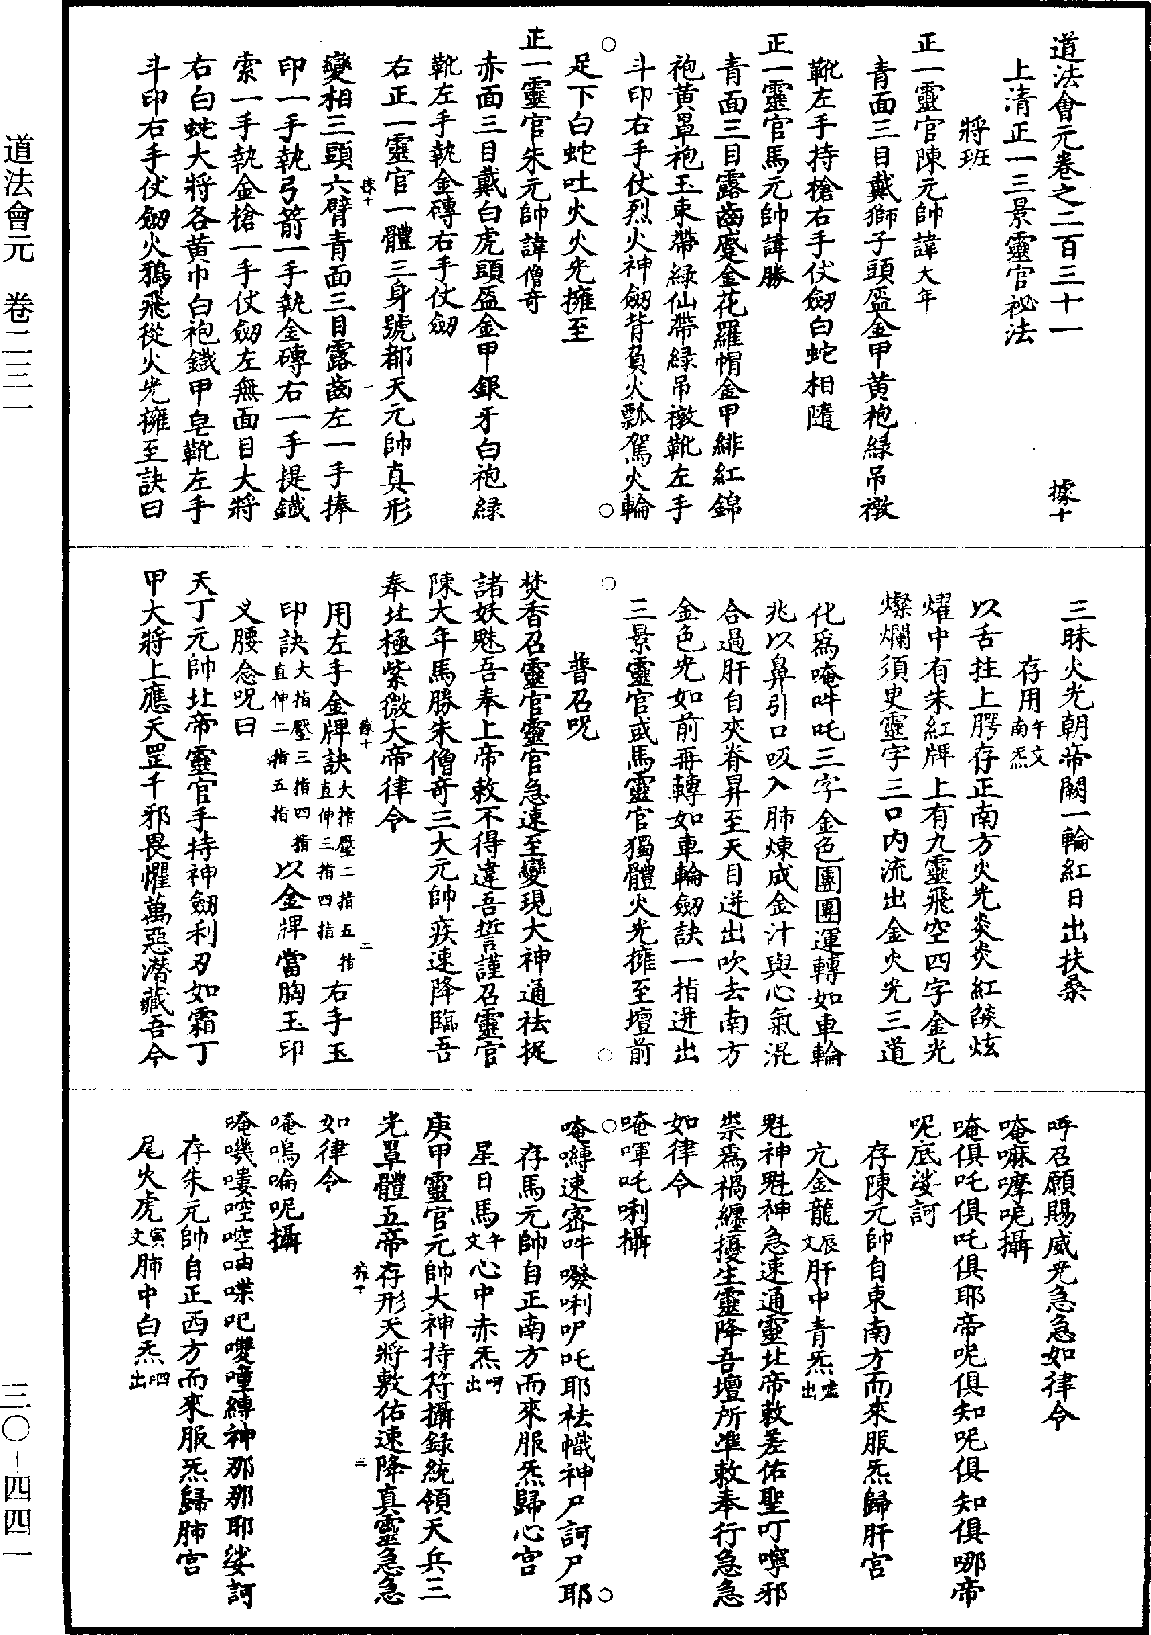 道法會元　卷二三一
三〇－四四一
道法會元卷之二百三十一　據十
上清正一三景靈官祕法
將班
正一靈官陳元帥諱大年
青面三目戴獅子頭盔金甲黃袍綠吊襪
靴左手持槍右手仗劒白蛇相隨
正一靈官馬元帥諱勝
青面三目露齒蹙金花羅帽金甲緋紅錦
袍黃罩袍玉束帶綠仙帶綠吊襪靴左手
斗印右手仗烈火神劒背負火瓢駕火輪
足下白蛇吐火火光擁至
正一靈官朱元帥諱僧奇
赤面三目戴白虎頭盔金甲銀牙白袍綠
靴左手執金磚右手仗劒
右正一靈官一體三身號都天元帥真形
據十　一
變相三頭六臂青面三目露齒左一手捧
印一手執弓箭一手執金磚右一手提鐵
索一手執金槍一手仗劒左無面目大將
右白蛇大將各黃巾白袍鐵甲皂靴左手
斗印右手仗劒火鴉飛從火光擁至訣曰
三昧火光朝帝闕一輪紅日出扶桑
存用午文南炁
以舌拄上腭存正南方火光炎炎紅燄炫
燿中有朱紅牌上有九靈飛空四字金光
燦爛須臾靈字三口內流出金火光三道
化爲唵吽吒三字金色團團運轉如車輪
兆以鼻引口吸入肺煉成金汁與心氣混
合過肝自夾脊昇至天目迸出吹去南方
金色光如前再轉如車輪劒訣一指迸出
三景靈官或馬靈官獨體火光擁至壇前
普召呪
焚香召靈官靈官急速至變現大神通祛捉
諸妖魅吾奉上帝敕不得違吾誓謹召靈官
陳大年馬勝朱僧奇三大元帥疾速降臨吾
奉北極紫微大帝律令
據十　二
用左手金牌訣大指壓二指五指直伸三指四指右手玉
印訣大指壓三指四指直伸二指五指以金牌當胸玉印
叉腰念呪曰
天丁元帥北帝靈官手持神劒利刃如霜丁
甲大將上應天罡千邪畏懼萬惡潛藏吾今
呼召願賜威光急急如律令
唵嘛嚤呢攝
唵俱吒俱吒俱耶帝呢俱知呢俱知俱哪帝
呢底娑訶
存陳元帥自東南方而來服炁歸肝宮
亢金龍辰文肝中青炁噓出
魁神魁神急速通靈北帝敕差佑聖叮嚀邪
祟爲禍纏擾生靈降吾壇所準敕奉行急急
如律令
唵㖇吒唎攝
唵嚩速寄吽㘔唎吖吒耶祛幟神尸訶尸耶
存馬元帥自正南方而來服炁歸心宮
星日馬午文心中赤炁呵出
庚甲靈官元帥大神持符攝錄統領天兵三
光罩體五帝存形天將敷佑速降真靈急急
據十　三
如律令
唵嗚㖮呢攝
存朱元帥自正西方而來服炁歸肺宮
尾火虎寅文肺中白炁呬出